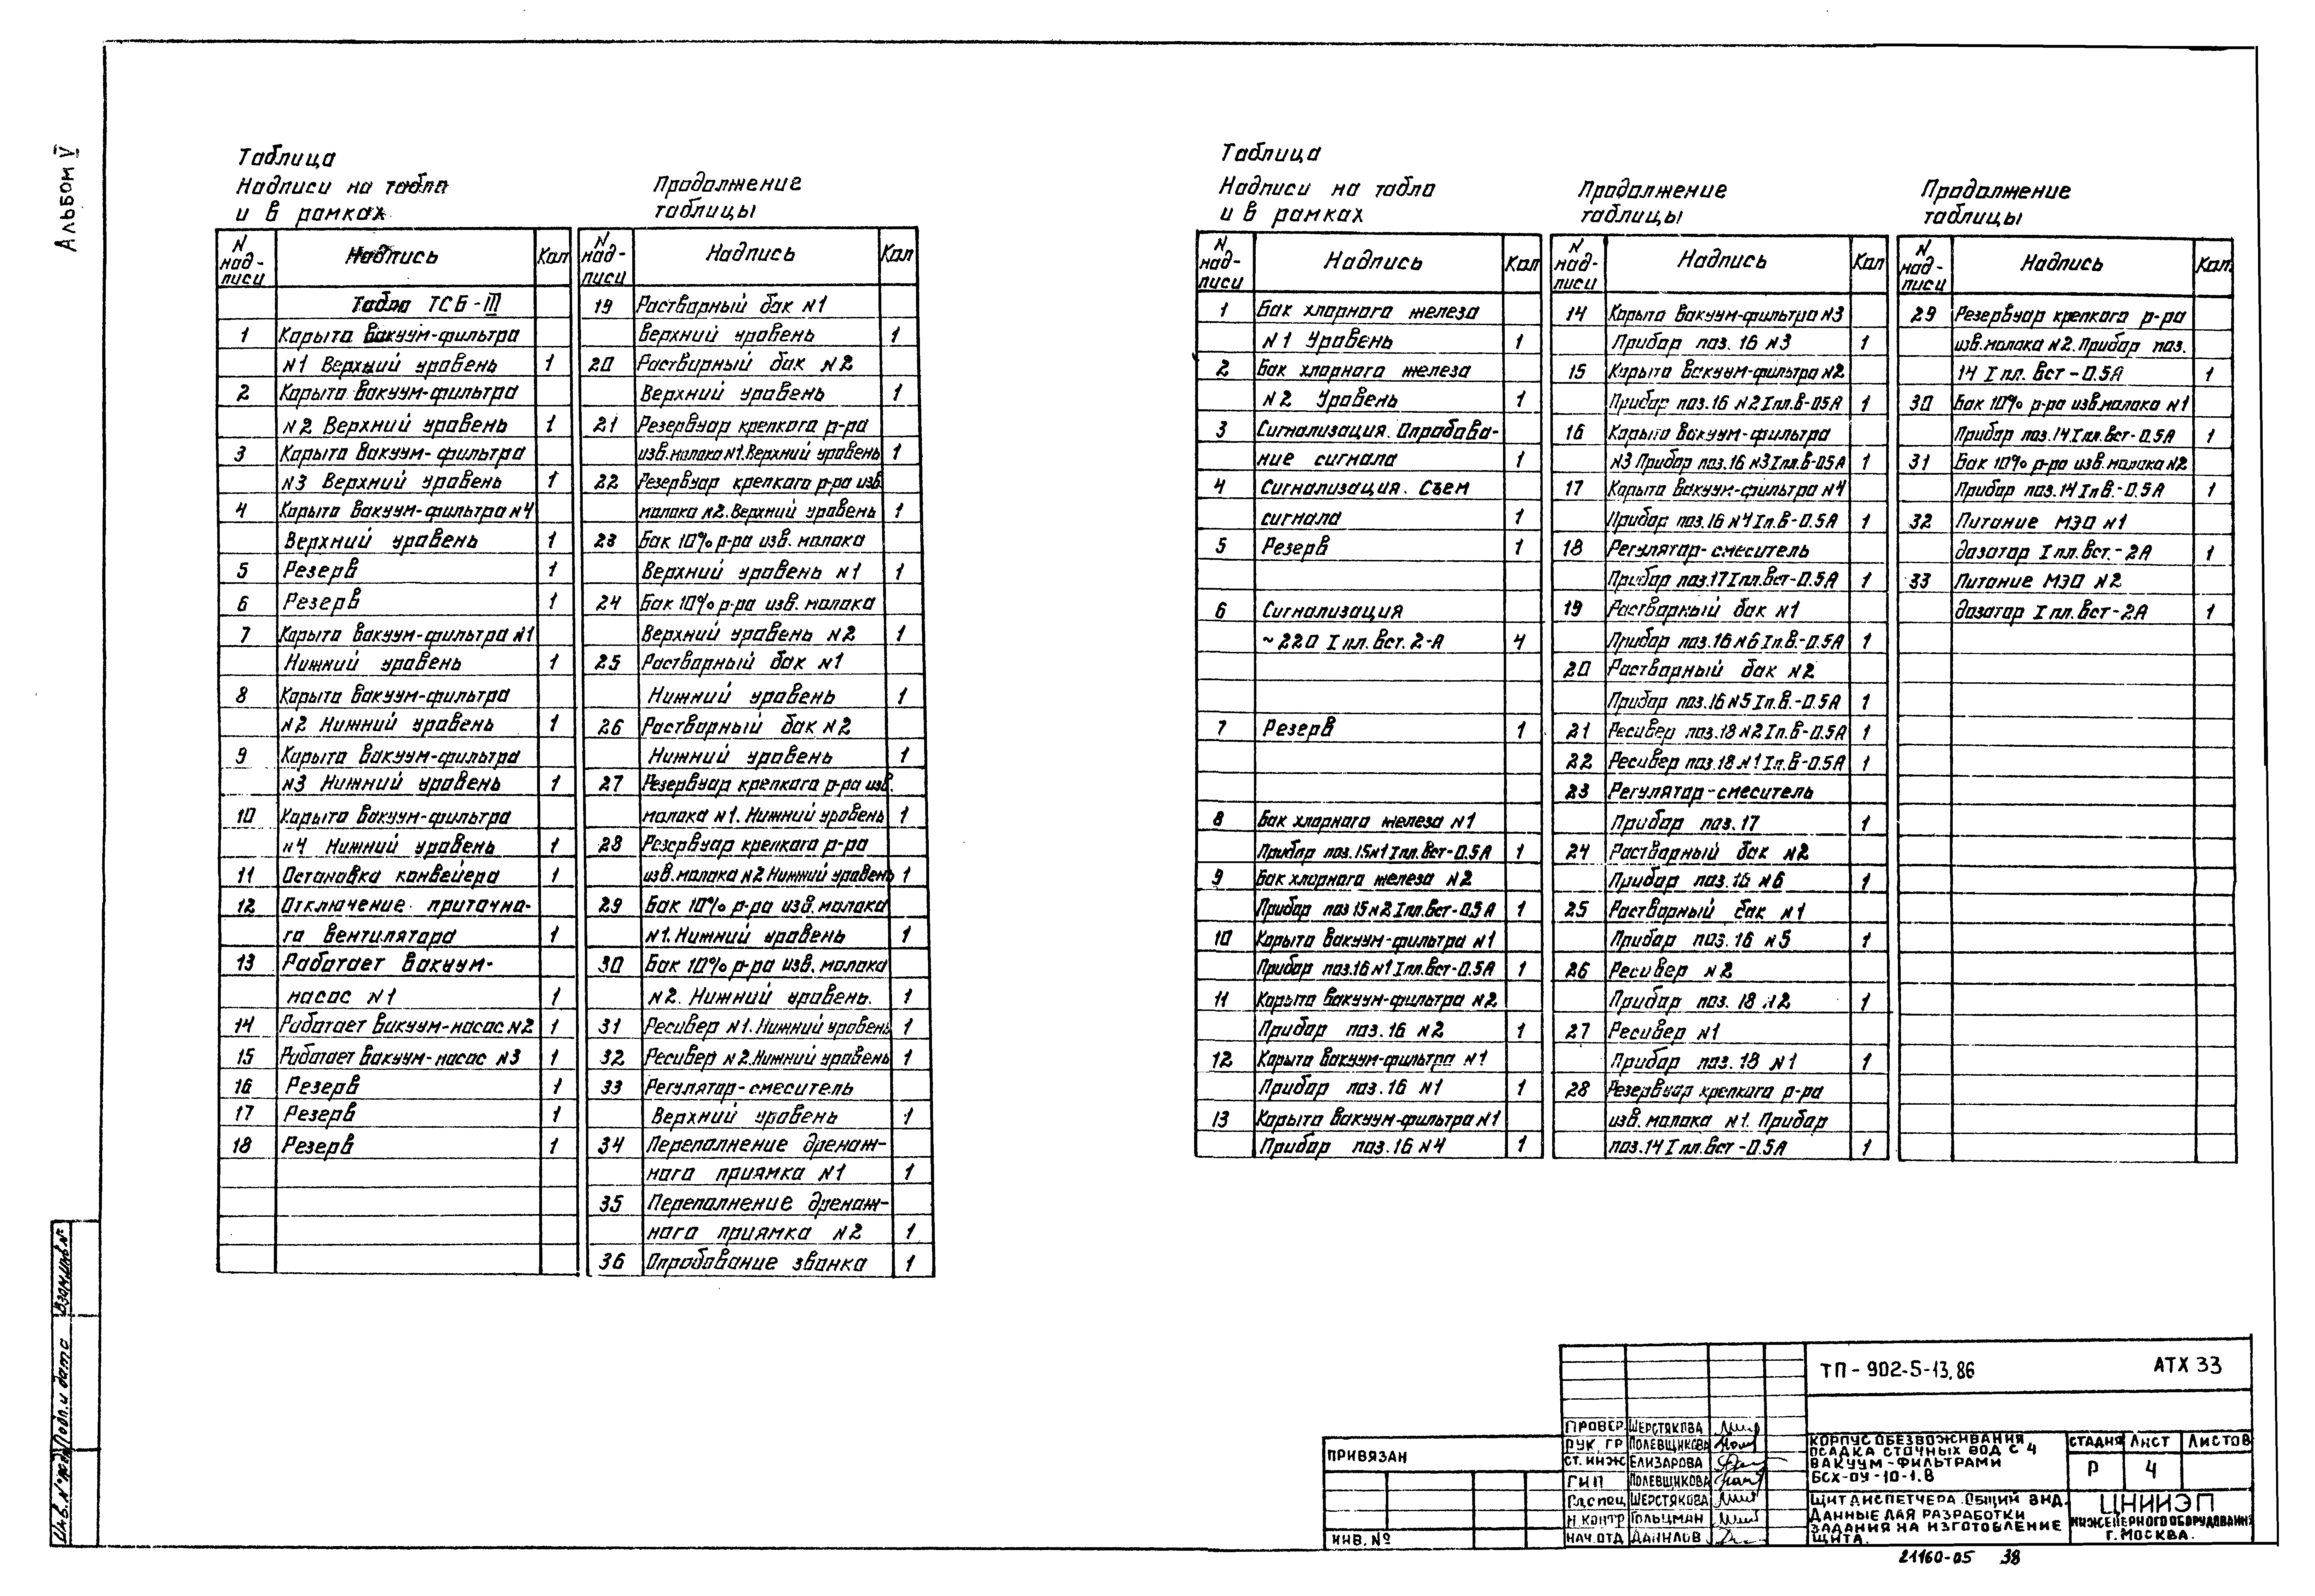 Альбом V
Таблица
Надписи на табло
и в рамках
N надписи Надпись Кол
Табло ТСБ-III
1 Корыто вакуум-фильтра
N1 Верхний уровень 1
2 Корыто вакуум-фильтра
N2 Верхний уровень 1
3 Корыто вакуум-фильтра
N3 Верхний уровень 1
4 Корыто вакуум-фильтра N4
Верхний уровень 1
5 Резерв 1
6 Резерв 1
7 Корыто вакуум-фильтра N1
Нижний уровень 1
8 Корыто вакуум-фильтра
N2 Нижний уровень 1
9 Корыто вакуум-фильтра
N3 Нижний уровень 1
10 Корыто вакуум-фильтра
N4 Нижний уровень 1
11 Остановка конвейера 1
12 Отключение приточно-
го вентилятора 1
13 Работает вакуум-
насос N1 1
14 Работает вакуум-насос N2 1
15 Работает вакуум-насос N3 1
16 Резерв 1
17 Резерв 1
18 Резерв 1
Продолжение
таблицы
N надписи Надпись Кол
19 Растворный бак N1
Верхний уровень 1
20 Растворный бак N2
Верхний уровень 1
21 Резервуар крепкого р-ра
изв.молока N1.Верхний уровень 1
22 Резервуар крепкого р-ра изв.
молока N2.Верхний уровень 1
23 Бак 10% р-ра изв. молока
Верхний уровень N1 1
24 Бак 10% р-ра изв. молока
Верхний уровень N2 1
25 Растворный бак N1
Нижний уровень 1
26 Растворный бак N2
Нижний уровень 1
27 Резервуар крепкого р-ра изв.
молока N1. Нижний уровень 1
28 Резервуар крепкого р-ра
изв.молока N2 Нижний уровень 1
29 Бак 10% р-ра изв. молока
N1. Нижний уровень 1
30 Бак 10% р-ра изв. молока
N2. Нижний уровень. 1
31 Ресивер N1. Нижний уровень 1
32 Ресивер N2.Нижний уровень 1
33 Регулятор-смеситель
Верхний уровень 1
34 Переполнение дренаж-
ного приямка N1 1
35 Переполнение дренаж-
ного приямка N2 1
36 Опробование звонка 1
Таблица
Надписи на табло
и в рамках
N надписи Надпись Кол
1 Бак хлорного железа
N1 Уровень 1
2 Бак хлорного железа
N2 Уровень 1
3 Сигнализация. Опробова-
ние сигнала 1
4 Сигнализация. Съем
сигнала 1
5 Резерв 1
6 Сигнализация
~220 I пл. вст. 2-А 4
7 Резерв 1
8 Бак хлорного железа N1
Прибор поз.15N1 Iпл.вст-0.5А 1
9 Бак хлорного железа N2
Прибор поз 15N2 Iпл.вст-0.5А 1
10 Корыто вакуум-фильтра N1
Прибор поз.16 N1 Iпл.вст-0.5А 1
11 Корыто вакуум-фильтра N2
Прибор поз.16 N2 1
12 Корыто вакуум-фильтра N1
Прибор поз.16 N1 1
13 Корыто вакуум-фильтра N1
Прибор поз.16 N4 1
Продолжение
таблицы
N надписи Надпись Кол
14 Корыто вакуум-фильтра N3
Прибор поз. 16 N3 1
15 Корыто вакуум-фильтра N2
Прибор поз.16 N2 Iпл.в-05А 1
16 Корыто вакуум-фильтра
N3 Прибор поз.16 N3 Iпл.в-05А 1
17 Корыто вакуум-фильтра N4
Прибор поз.16 N4 Iп.в-0.5А 1
18 Регулятор-смеситель
Прибор поз.17 Iпл.вст-0.5А 1
19 Растворный бак N1
Прибор поз.16 N6 Iп.в.-0.5А 1
20 Растворный бак N2
Прибор поз.16 N5 Iп.в.-0.5А 1
21 Ресивер поз.18 N2 Iп.в-0.5А 1
22 Ресивер поз.18 N1 Iп.в-0.5А 1
23 Регулятор-смеситель
Прибор поз.17 1
24 Растворный бак N2
Прибор поз.16 N6 1
25 Растворный бак N1
Прибор поз.16 N5 1
26 Ресивер N2
Прибор поз. 18 N2 1
27 Ресивер N1
Прибор поз. 18 N1 1
28 Резервуар крепкого р-ра
изв. молока N1. Прибор
поз.14 I пл.вст-0.5А 1
Продолжение
таблицы
N надписи Надпись Кол.
29 Резервуар крепкого р-ра
изв.молока N2. Прибор поз.
14 I пл. вст-0.5А 1
30 Бак 10% р-ра изв.молока N1
Прибор поз.14 Iпл.вст-0.5А 1
31 Бак 10% р-ра изв.молока N2
Прибор поз.14 Iп в.-0.5А 1
32 Питание МЭО N1
дозатор I пл.вст.-2А 1
33 Питание МЭО N2
дозатор I пл.вст-2А 1
Взам.инв.N
Подп.и дата
Инв.N подл
ПРИВЯЗАН
ИНВ.№
ПРОВЕР ШЕРСТЯКОВА
РУК.ГР ПОЛЕВЩИКОВА
СТ.ИНЖ ЕЛИЗАРОВА
ГИП ПОЛЕВЩИКОВА
Гл.спец ШЕРСТЯКОВА
Н.КОНТР ГОЛЬЦМАН
НАЧ.ОТД ДАНИЛОВ
ТП-902-5-13.86 АТХ 33
КОРПУС ОБЕЗВОЖИВАНИЯ
ОСАДКА СТОЧНЫХ ВОД С 4
ВАКУУМ-ФИЛЬТРАМИ
БСХ-ОУ-10-1.8
СТАДИЯ ЛИСТ ЛИСТОВ
Р 4
ЩИТ ДИСПЕТЧЕРА. ОБЩИЙ ВИД.
ДАННЫЕ ДЛЯ РАЗРАБОТКИ
ЗАДАНИЯ НА ИЗГОТОВЛЕНИЕ
ЩИТА.
ЦНИИЭП
ИНЖЕНЕРНОГО ОБОРУДОВАНИЯ
Г.МОСКВА.
21160-05 38